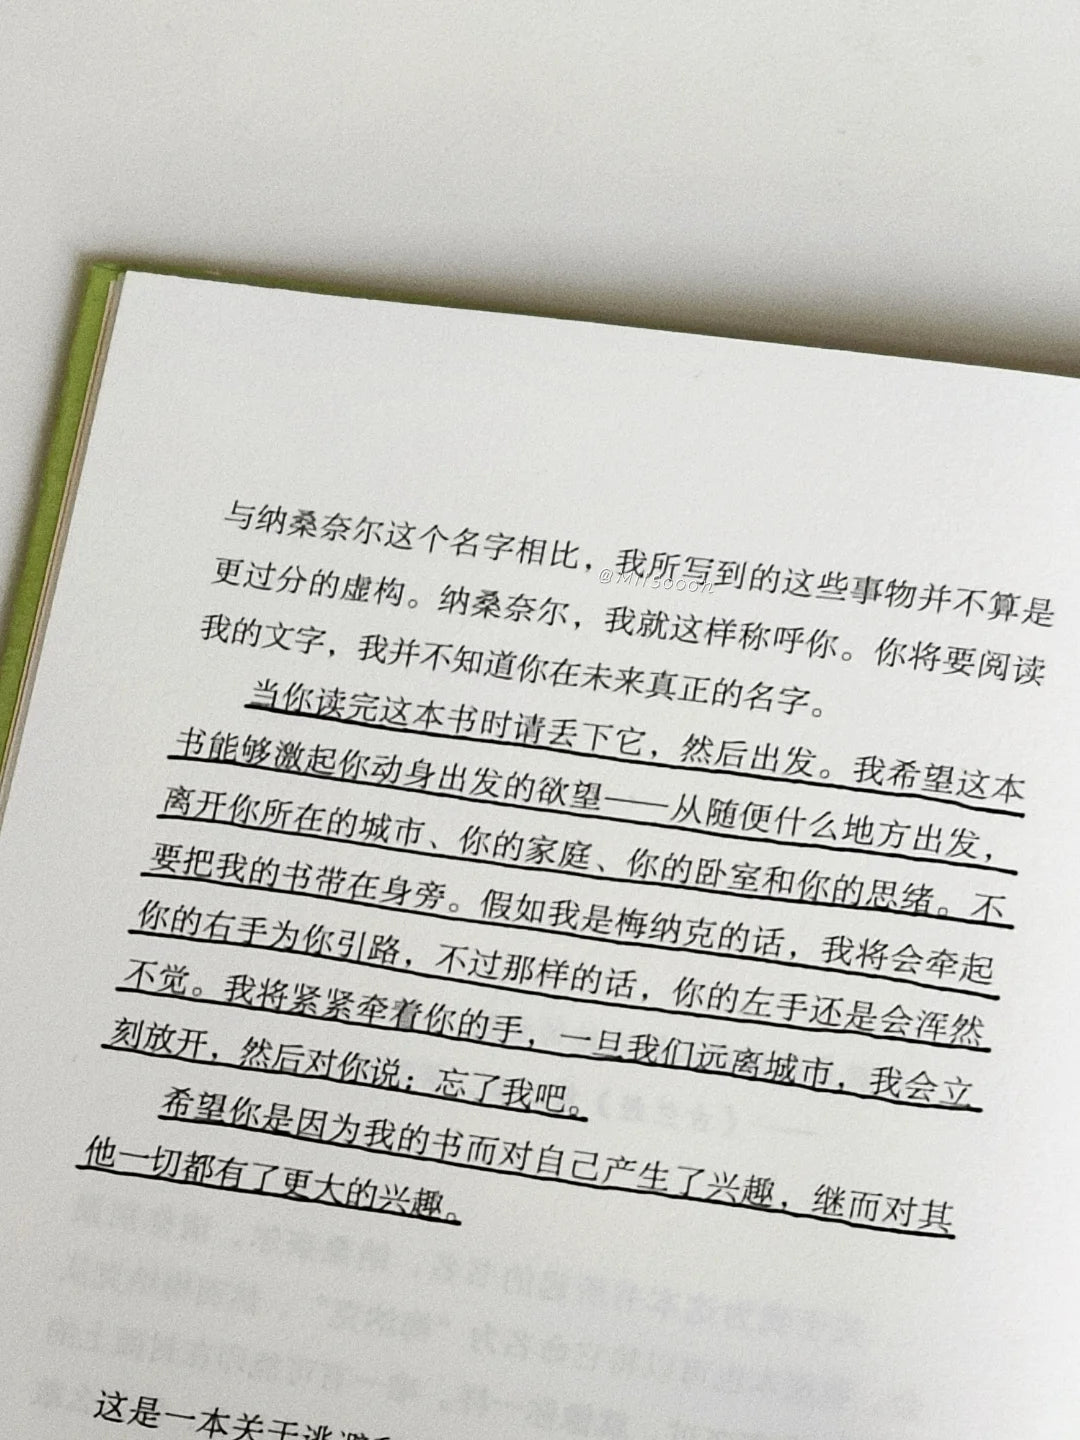 与纳桑奈尔这个名字相比，我所写到的这些事物并不算是
更过分的虚构。纳桑奈尔，我就这样称呼你。你将要阅读
我的文字，我并不知道你在未来真正的名字。
当你读完这本书时请丢下它，然后出发。我希望这本
书能够激起你动身出发的欲望——从随便什么地方出发，
离开你所在的城市、你的家庭、你的卧室和你的思绪。不
要把我的书带在身旁。假如我是梅纳克的话，我将会牵起
你的右手为你引路，不过那样的话，你的左手还是会浑然
不觉。我将紧紧牵着你的手，一旦我们远离城市，我会立
刻放开，然后对你说：忘了我吧。
希望你是因为我的书而对自己产生了兴趣，继而对其
他一切都有了更大的兴趣。
这是一本关于逃避